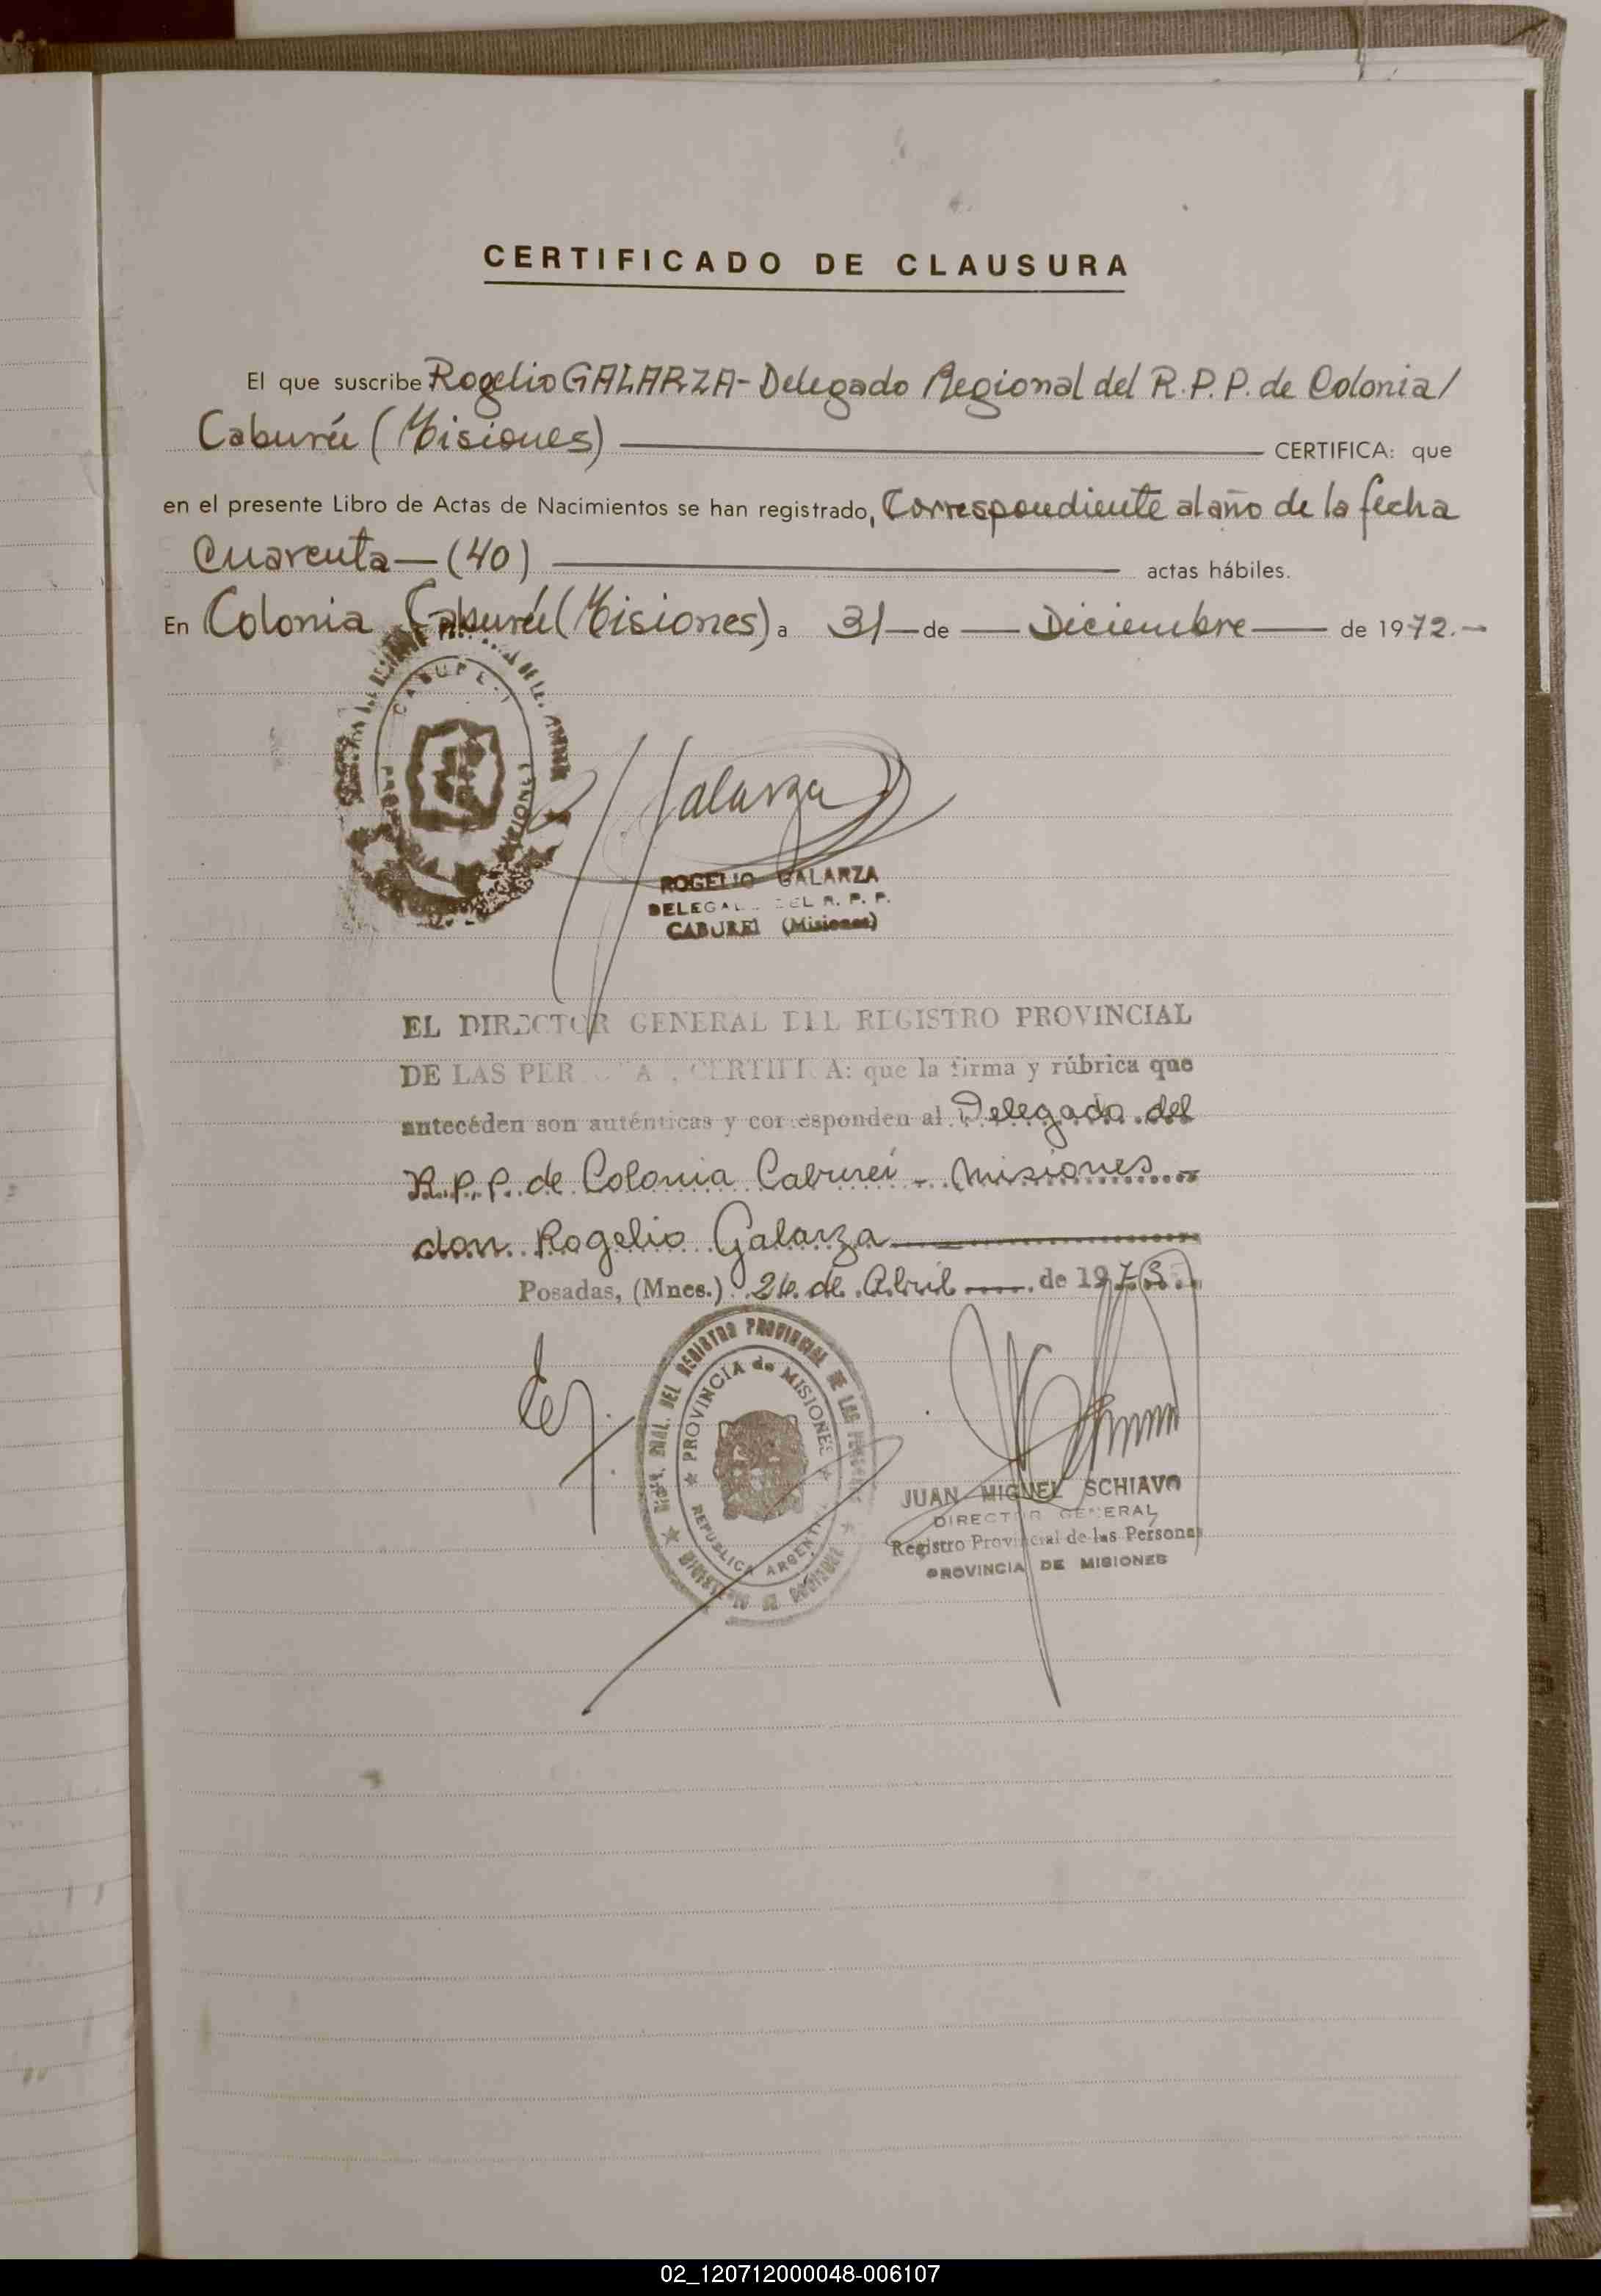 CERTIFICADO DE CLAUSURA
El que suscribe Rogelio GALARZA - Delegado Regional del R.P.P. de Colonia/
Cabureí (Misiones) CERTIFICA: que
en el presente Libro de Actas de Nacimientos se han registrado, Correspondiente al año de la fecha
Cuarenta — (40) actas hábiles.
En Colonia Cabureí (Misiones) a 31 — de — Diciembre — de 1972.-
Galarza
ROGELIO GALARZA
DEL R. P. P.
CABUREI (Misiones)
EL DIRECTOR GENERAL DEL REGISTRO PROVINCIAL
DE LAS CERTIFICA: que la firma y rúbrica que
antecéden son auténticas y corresponden al Delegado del
R.P.P. de Colonia Cabureí - Misiones -
don Rogelio Galarza
Posadas, (Mnes.) 26 de Abril — de 1973
REGISTRO PROVINCIAL DE LAS
PROVINCIA de MISIONES
REPUBLICA ARGENTINA
JUAN MIGUEL SCHIAVO
DIRECTOR GENERAL
Registro Provincial de las Personas
PROVINCIA DE MISIONES
02_120712000048-006107